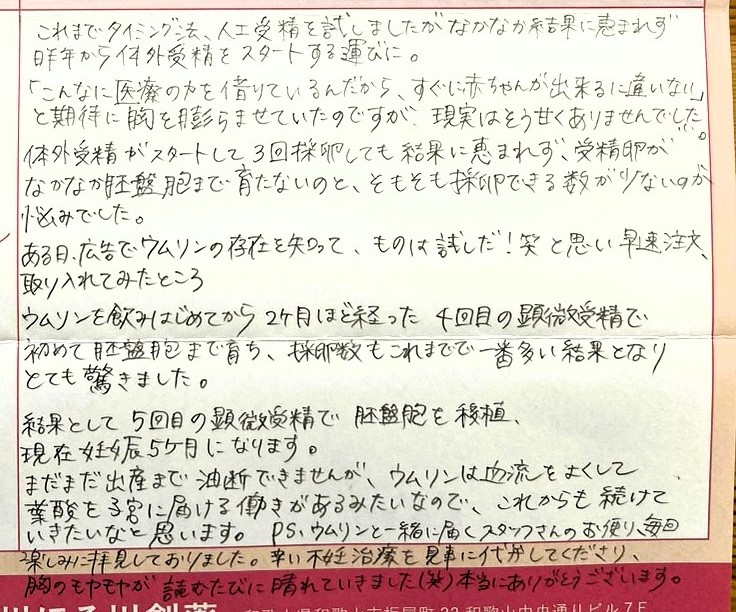 これまでタイミング法、人工受精を試しましたがなかなか結果に恵まれず
昨年から体外受精をスタートする運びに。
「こんなに医療の力を借りているんだから、すぐに赤ちゃんが出来るに違いない」
と期待に胸を膨らませていたのですが、現実はそう甘くありませんでした…。
体外受精がスタートして、3回採卵しても結果に恵まれず、受精卵が
なかなか胚盤胞まで育たないのと、そもそも採卵できる数が少ないのが
悩みでした。
ある日、広告でウムリンの存在を知って、ものは試しだ!笑 と思い早速注文、
取り入れてみたところ
ウムリンを飲みはじめてから2ヶ月ほど経った 4回目の顕微受精で
初めて胚盤胞まで育ち、採卵数もこれまでで一番多い結果となり
とても驚きました。
結果として5回目の顕微受精で胚盤胞を移植、
現在妊娠5ヶ月になります。
まだまだ出産まで油断できませんが、ウムリンは血流をよくして
葉酸を子宮に届ける働きがあるみたいなので、これからも続けて
いきたいなと思います。 PS、ウムリンと一緒に届くスタッフさんのお便り、毎回
楽しみに拝見しておりました。辛い不妊治療を見事に代弁してくださり、
胸のモヤモヤが読むたびに晴れていきました(笑)本当にありがとうございます。